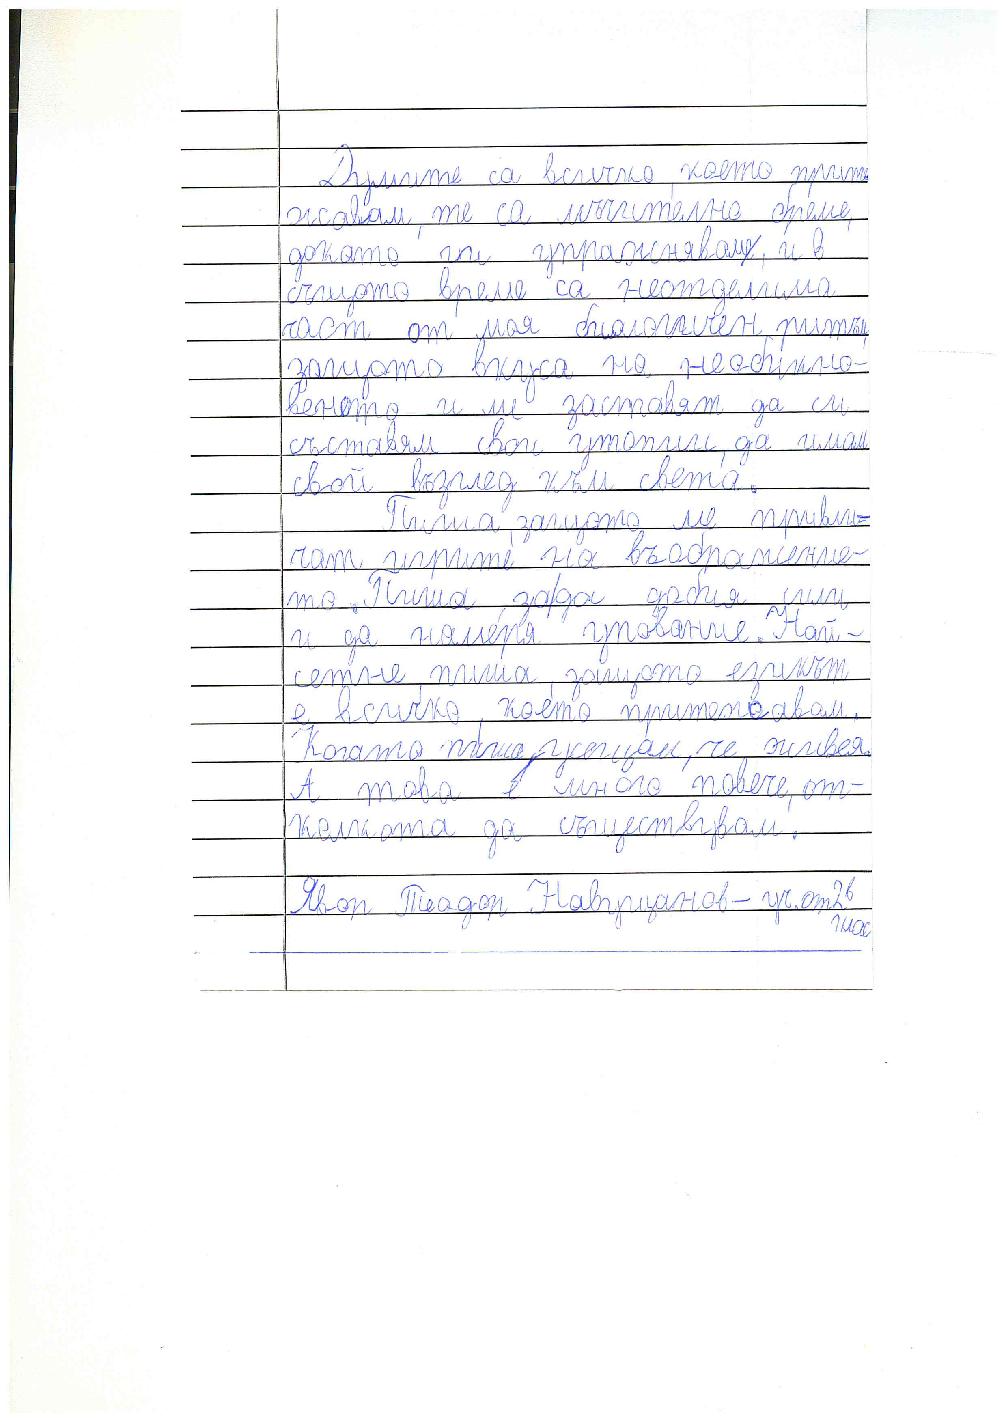 Думите са всичко, което прите-
жавам, те са мъчително бреме,
докато ги упражнявам, и в
същото време са неотделима
част от моя биологичен ритъм,
защото вкуса на необикно-
веното и ме заставят да си
съставям свои утопии, да имам
свой възглед към света.
Пиша, защото ме привли-
чат игрите на въображение-
то. Пиша, за да добия сили
и да намеря упование. Най-
сетне, пиша, защото езикът
е всичко, което притежавам.
Когато пиша, усещам, че живея.
А това е много повече, от-
колкото да съществувам.
Явор Теодор Навущанов – уч. от 2б
клас